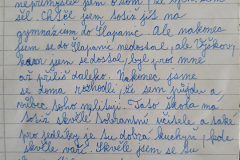 jsem o tom, že
šel. Chtěl jsem totiž jít na
gymnázium do Šlapanic. Ale nakonec
jsem se do Šlapanic nedostal, ale Výškov,
kam jsem se dostal, byl pro mně
až příliš daleko. Nakonec jsme
se doma rozhodli, že sem půjdu a
vůbec toho nelituji. Tato škola má
totiž skvělé učitele a také
pro jedlíky je tu dobrá kuchyň, kde
skvěle vaří. Skvěle jsem se tu